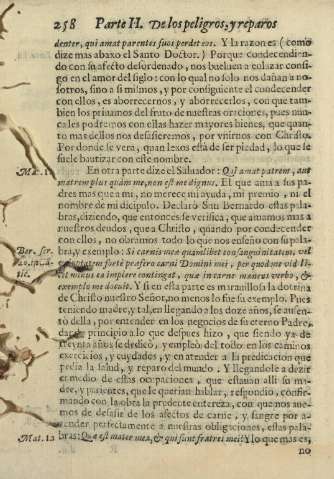 258 Parte II. De los peligros, y reparos
denter, qui amat parentes suos perdet eos. Y la razon es (como
dize mas abaxo el Santo Doctor.) Porque condecendien-
do con su afecto desordenado, nos buelven a enlazar consi-
go en el amor del siglo: con lo qual no solo nos dañan a no-
sotros, sino a si mismos, y por consiguiente el condecender
con ellos, es aborrecernos, y aborrecerlos, con que tam-
bien los privamos del fruto de nuestras oraciones, pues nun-
ca les podremos con ellas hazer mayores bienes, que quan-
to mas dellos nos desasieremos, por vnirnos con Christo.
Por donde se verà, quan lexos està de ser piedad, lo que se
suele bautizar con este nombre.
Mat. 1. En otra parte dize el Salvador: Qui amat patrem, aut
matrem plus quàm me, non est me dignus. El que ama a sus pa-
dres mas que a mi, no merece mi ayuda, mi premio, ni el
nombre de mi dicipulo. Declarò San Bernardo estas pala-
bras, diziendo, que entonces se verifica, que amamos mas a
nuestros deudos, que a Christo, quando por condecender
con ellos, no obramos todo lo que nos enseñò con su pala-
Ber. ser. bra, y exemplo: Si carnis meæ quamlibet consanguinitatem, vel
forte præfero carni Domini mei, per quod me vid
minus ea implere contingat, quæ in carne manens verbo, &
exemplo me docuit. Y si en esta parte es maravillosa la dotrina
de Christo nuestro Señor, no menos lo fue su exemplo. Pues
teniendo madre, y tal, en llegando a los doze años, se ausen-
tò della, por entender en los negocios de su eterno Padre,
dando principio a lo que despues hizo, que siendo ya de
treynta años se dedicò, y empleò del todo en los caminos
exercicios, y cuydados, y en atender a la predicacion que
pedia la salud, y reparo del mundo. Y llegandole a dezir
en medio de estas ocupaciones, que estavan alli su ma-
dre, y parientes, que le querian hablar, respondio, confir-
mando con la obra la predente entereza, con que nos ave-
mos de desasir de los afectos de carne, y sangre por a-
tender perfectamente a nuestras obligaciones, estas pala-
Mat. 12 bras: Quæ est mater mea, & qui sunt fratres mei? Y lo que mas es,
no